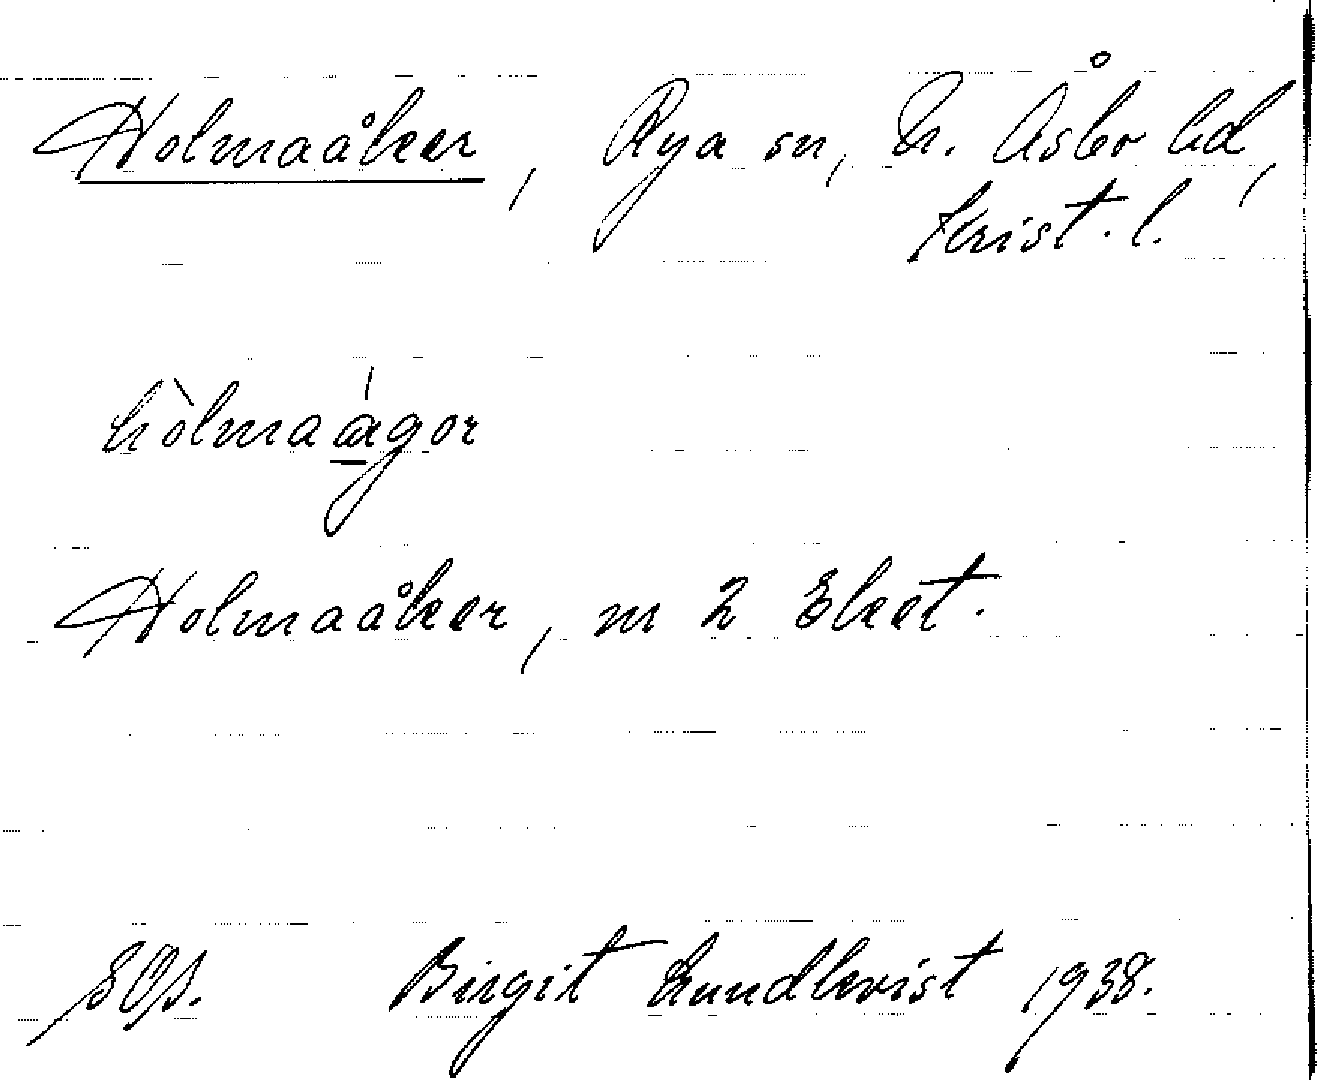 Holmaåker, Rya sn, N. Åsbo hd,
Krist. l.
hòlmaágor
Holmaåker, nr 2 Eket.
SOS. Birgit Lundkvist 1938.